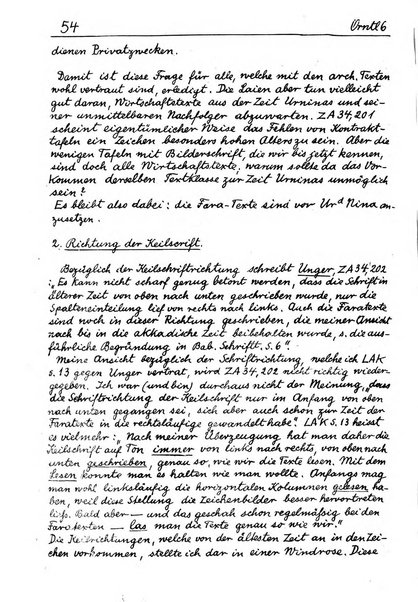 54 Orntl6
dienen Privatzwecken.
Damit ist diese Frage für alle, welche mit den arch. Texten
wohl vertraut sind, erledigt. Die Laien aber tun vielleicht
gut daran, Wirtschaftstexte aus der Zeit Urninas und sei-
ner unmittelbaren Nachfolger abzuwarten. ZA 34, 201
scheint eigentümlicher Weise das Fehlen von Kontrakt-
tafeln ein Zeichen besonders hohen Alters zu sein. Aber die
wenigen Tafeln mit Bilderschrift, die wir bis jetzt kennen,
sind doch alle Wirtschaftstexte, warum sollte da das Vor-
kommen derselben Textklasse zur Zeit Urninas unmöglich
sein?
Es bleibt also dabei: die Fara-Texte sind vor Ur d Nina an-
zusetzen.
2. Richtung der Keilscrift.
Bezüglich der Keilschriftrichtung schreibt Unger, ZA 34, 202
: „Es kann nicht scharf genug betont werden, dass die Schrift in
älterer Zeit von oben nach unten geschrieben wurde, nur die
Spalteneinteilung lief von rechts nach links. Auch die Faratexte
sind noch in dieser Richtung geschrieben, die meiner Ansicht
nach bis in die akkadische Zeit beibehalten wurde, s. die aus-
führliche Begründung in Bab. Schrift, S. 6".
Meine Ansicht bezüglich der Schriftrichtung, welche ich LAK
s. 13 gegen Unger vertrat, wird ZA 34, 202 nicht richtig wieder-
gegeben. Ich war (und bin) durchaus nicht der Meinung, „dass
die Schriftrichtung der Keilschrift nur im Anfang von oben
nach unten gegangen sei, sich aber auch schon zur Zeit der
Faratexte in die rechtsläufige gewandelt habe". LAK S. 13 heisst
es vielmehr: „Nach meiner Überzeugung hat man daher die
Keilschrift auf Ton immer von links nach rechts, von oben nach
unten geschrieben, genau so, wie wir die Texte lesen. Mit dem
Lesen konnte man es halten wie man wollte. Anfangs mag
man wohl linksläufig die horizontalen Kolumnen gelesen ha-
ben, weil diese Stellung die Zeichenbilder besser hervortreten
liess. Bald aber — und das geschah schon regelmässig bei den
Faratexten — las man die Texte genau so wie wir."
Die Keilrichtungen, welche von der ältesten Zeit an in den Zei-
chen vorkommen, stellte ich dar in einer Windrose. Diese